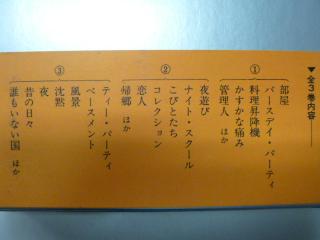 ▼全3巻内容
①
部屋
バースデイ・パーティ
料理昇降機
かすかな痛み
管理人 ほか
②
夜遊び
ナイト・スクール
こびとたち
コレクション
恋人
帰郷 ほか
③
ティー・パーティ
ベースメント
風景
沈黙
夜
昔の日々
誰もいない国 ほか